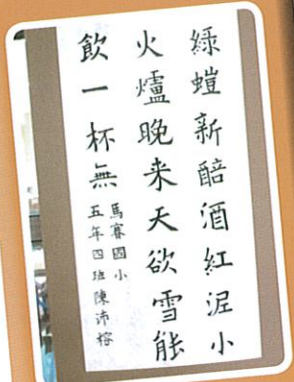 綠螘新醅酒紅泥小
火爐晚来天欲雪能
飲一杯無
馬賽國小
五年四班陳沛榕